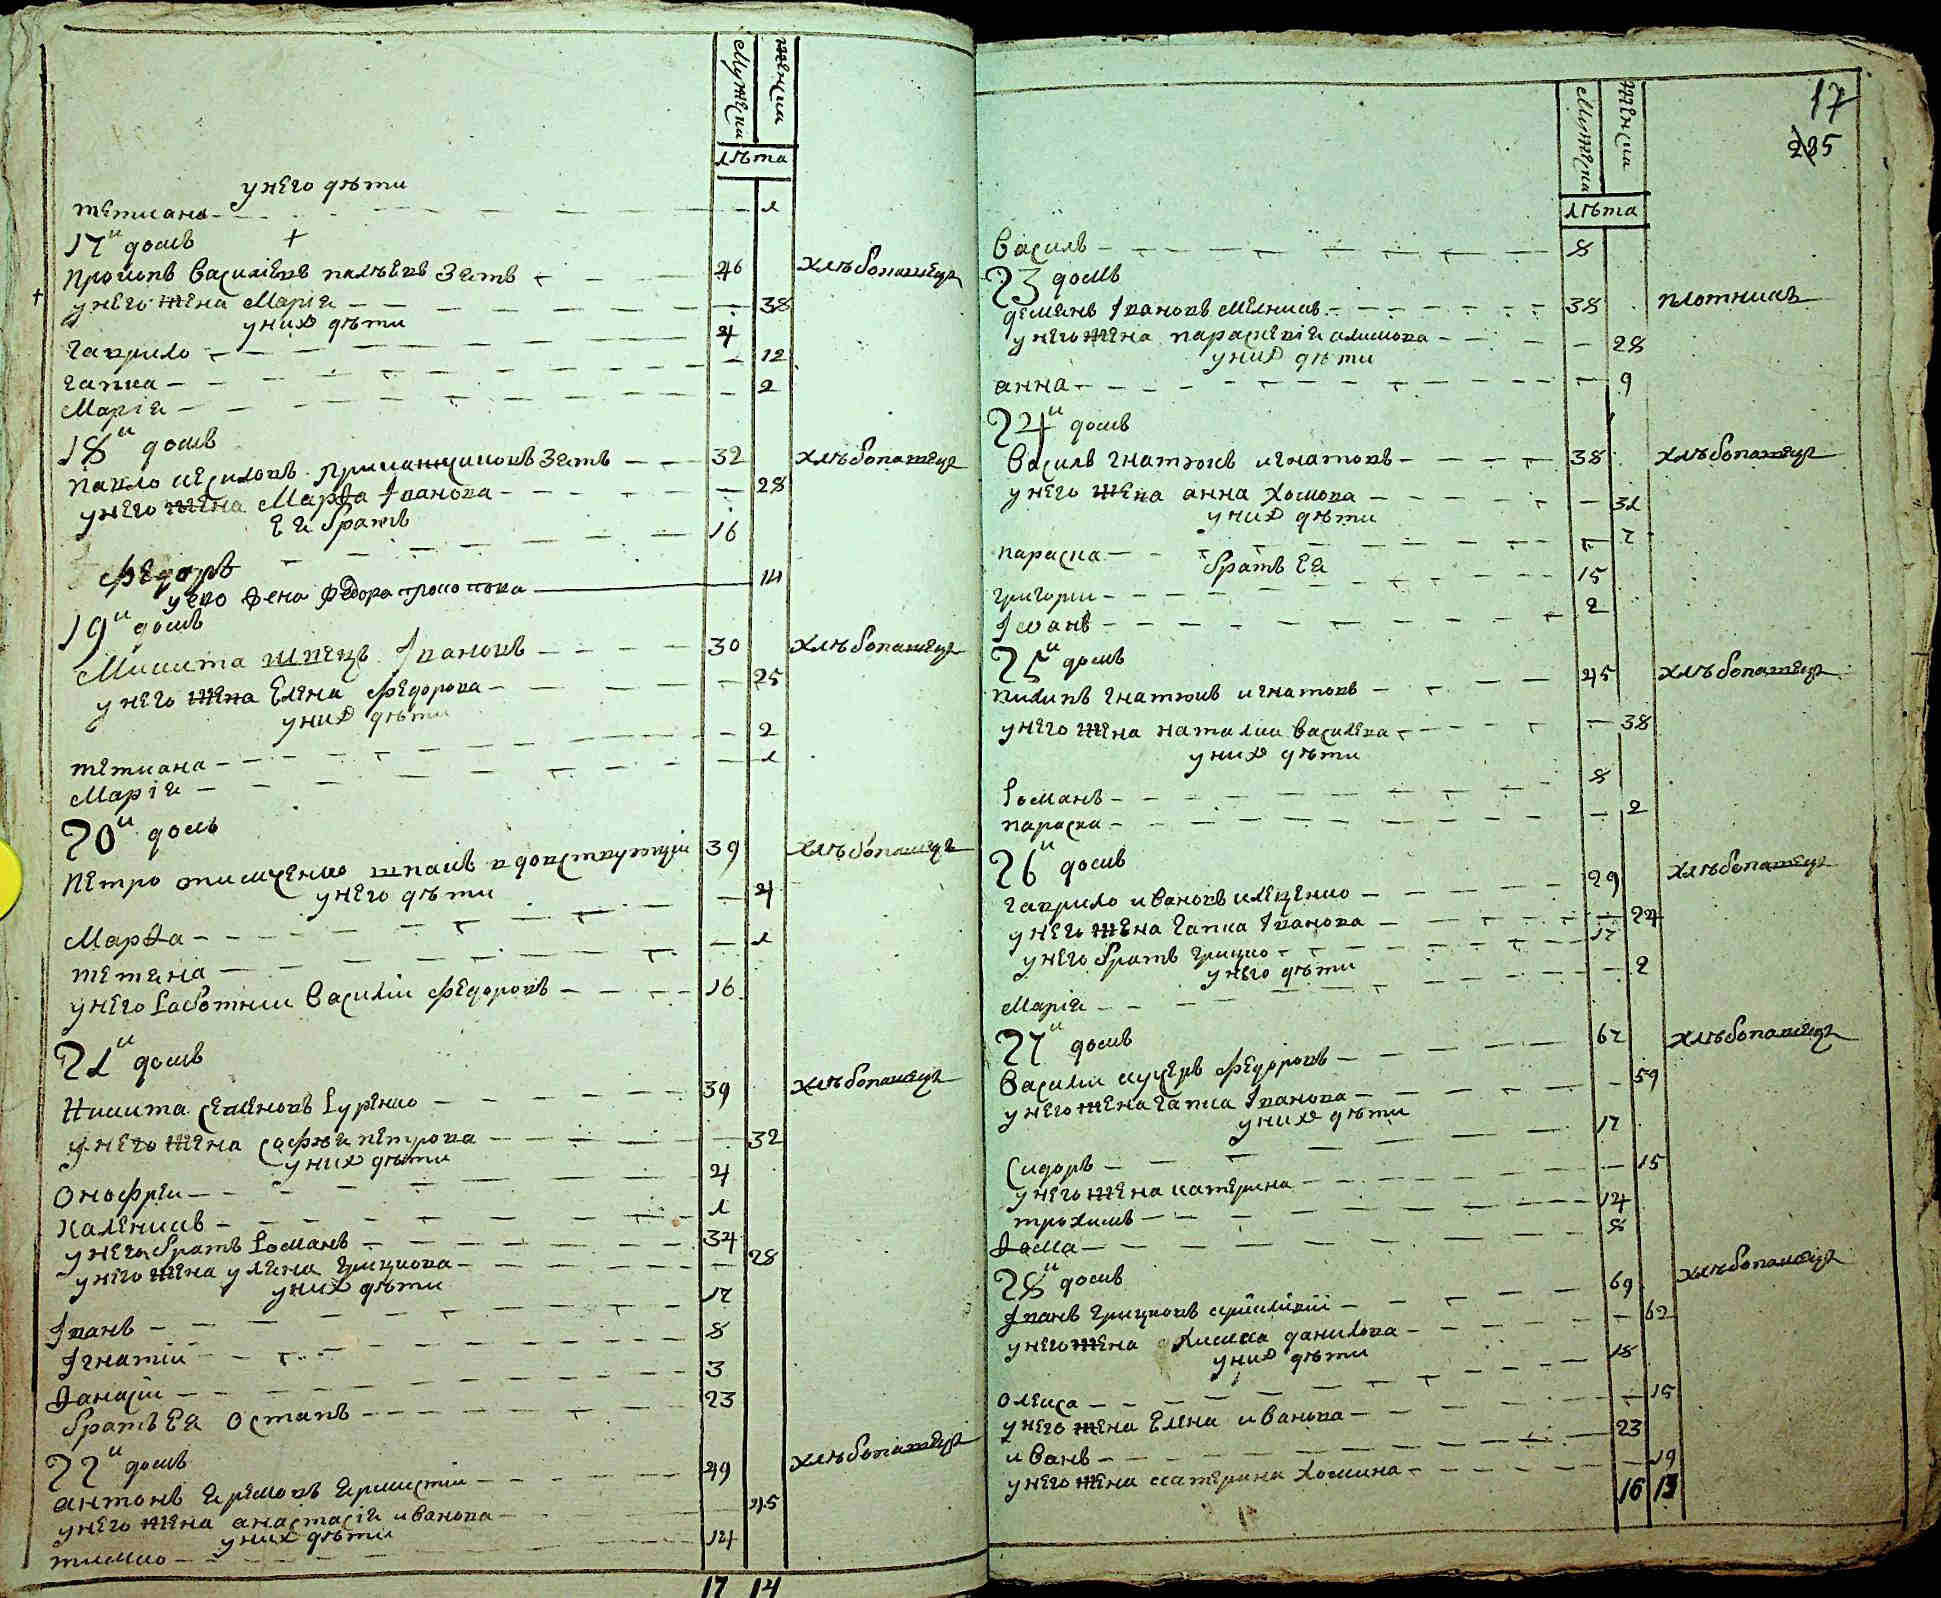 Мужеска
женска
лѣта
у него дѣти
тетиана 1
17й домъ
Прокопъ Василиевъ зять 46 хлѣбопашецъ
у него жена Мариа 38
у них дѣти
гаврило 4
гапка 12
Мариа 2
18й домъ
павло зять 32 хлѣбопашецъ
у него жена Марѳа Iванова 28
Еи братъ
Федоръ 16
у его жена Федора 14
19й домъ
Микита швецъ Iвановъ 30 хлѣбопашецъ
у него жена Елена Федорова 25
у них дѣти
тетиана 2
Мариа 1
20й домъ
Петро 39 хлѣбопашецъ
у него дѣти
Марѳа 4
тетяна 1
у него работник Василий Федоровъ 16
21й домъ
Никита Семеновъ Куренко 39 хлѣбопашецъ
у него жена Софѣя петрова 32
у них дѣти
Онофреи 4
Каленикъ 1
у него братъ Романъ 34
у него жена уляна грицкова 28
у них дѣти
Iванъ 17
Iгнатии 8
Ѳанасiи 3
братъ Ея Остапъ 23
22й домъ
антонъ 49 хлѣбопашецъ
у него жена анастасiя иванова 45
у них дѣти
тимко 14
17 14
17
285
Мужеска
женска
лѣта
Василь 8
23 домъ
демянъ Iвановъ мелникъ 38 плотникъ
у него жена параскевiя климова 28
у них дѣти
анна 9
24й домъ
Василь гнатюкъ игнатовъ 38 хлѣбопашецъ
у него жена анна хомова 31
у них дѣти
параска 7
братъ Ея
григории 15
Iванъ 2
25й домъ
пилипъ гнатюкъ игнатовъ 45 хлѣбопашецъ
у него жена наталия василева 38
у них дѣти
Романъ 8
параска 2
26й домъ
гаврило ивановъ клеценко 29 хлѣбопашецъ
у него жена гапка Iванова 24
у него братъ грицко 17
у него дѣти
Мариа 2
27й домъ
Василии кучеръ Федоровъ 67 хлѣбопашецъ
у него жена гапка Iванова 59
у них дѣти
Сидоръ 17
у него жена катерина 15
трохимъ 14
Ѳома 8
28й домъ
Iванъ грицковъ 69 хлѣбопашецъ
у него жена химка данилова 62
у них дѣти
олекса 18
у него жена Елена иванова 15
иванъ 23
у него жена катерина хомина 19
16 13